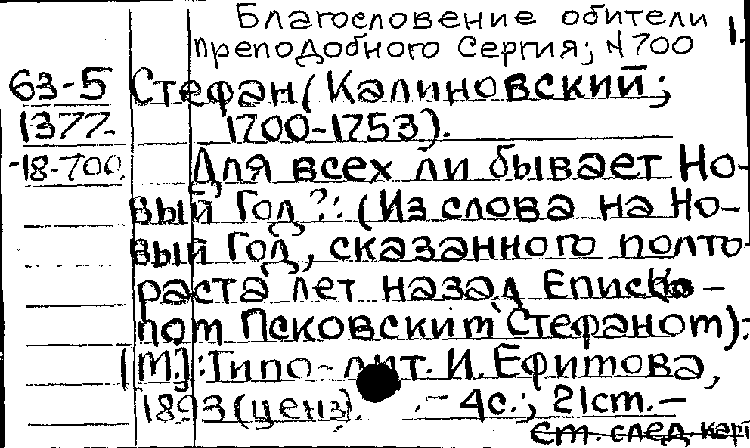 Благословение обители 1.
преподобного Сергия; № 700
63-5 Стефан (Калиновский;
1377- 1700-1753).
-18-700. Для всех ли бывает Но-
вый Год?: (Из слова на Но-
вый Год, сказанного полто-
раста лет назад Еписко-
пом Псковским Стефаном).-
[М.]: Типо-лит. И. Ефимова,
1893 (ценз). .- 4с.; 21см.-
См. след. карт